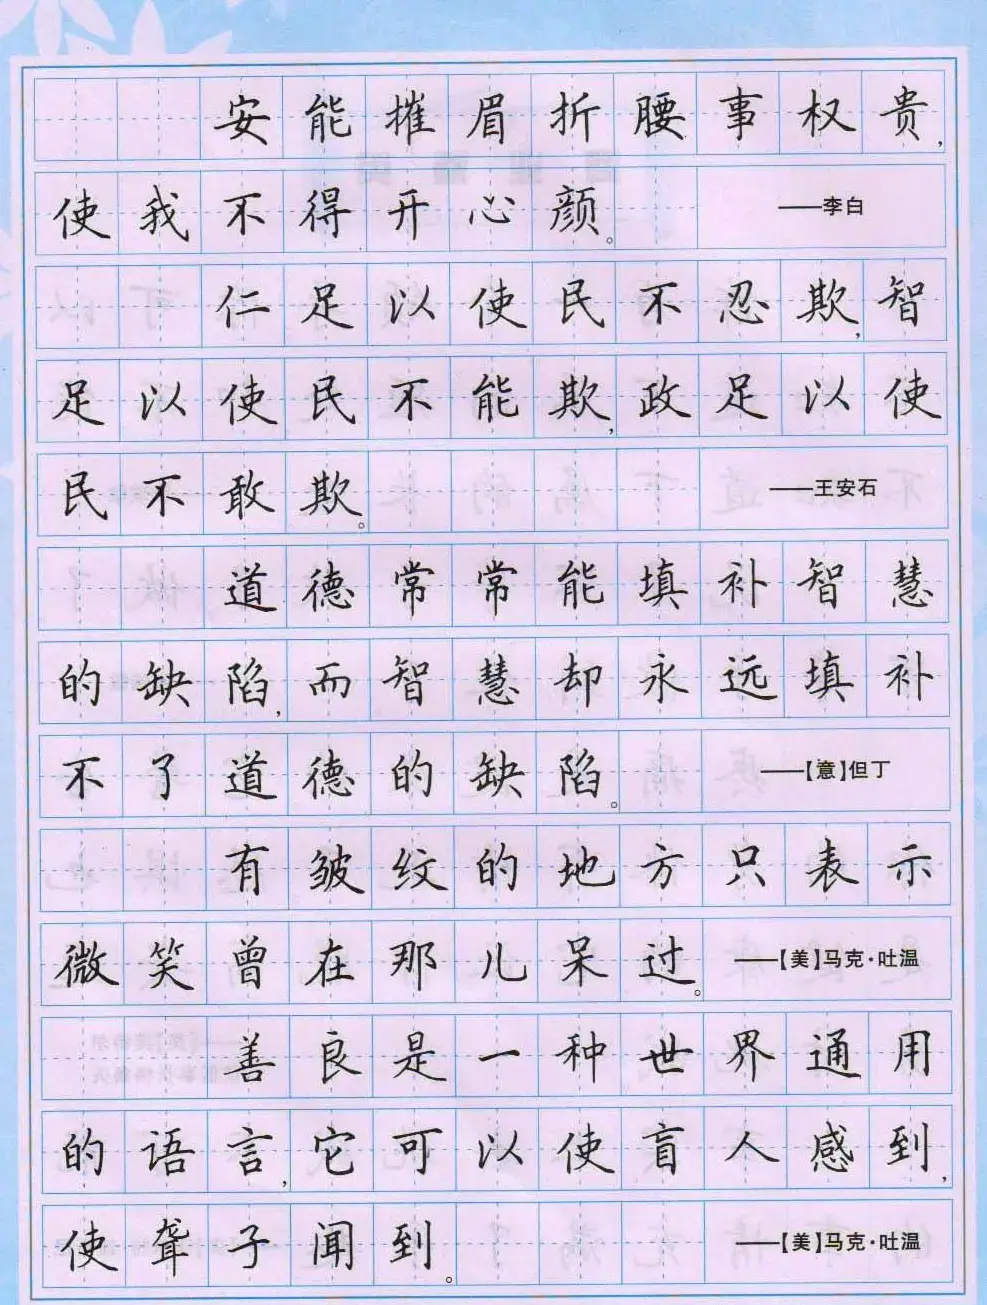 安能摧眉折腰事权贵,
使我不得开心颜。 ——李白
仁足以使民不忍欺,智
足以使民不能欺,政足以使
民不敢欺。 ——王安石
道德常常能填补智慧
的缺陷,而智慧却永远填补
不了道德的缺陷。 ——【意】但丁
有皱纹的地方只表示
微笑曾在那儿呆过。 ——【美】马克·吐温
善良是一种世界通用
的语言,它可以使盲人感到,
使聋子闻到。 ——【美】马克·吐温